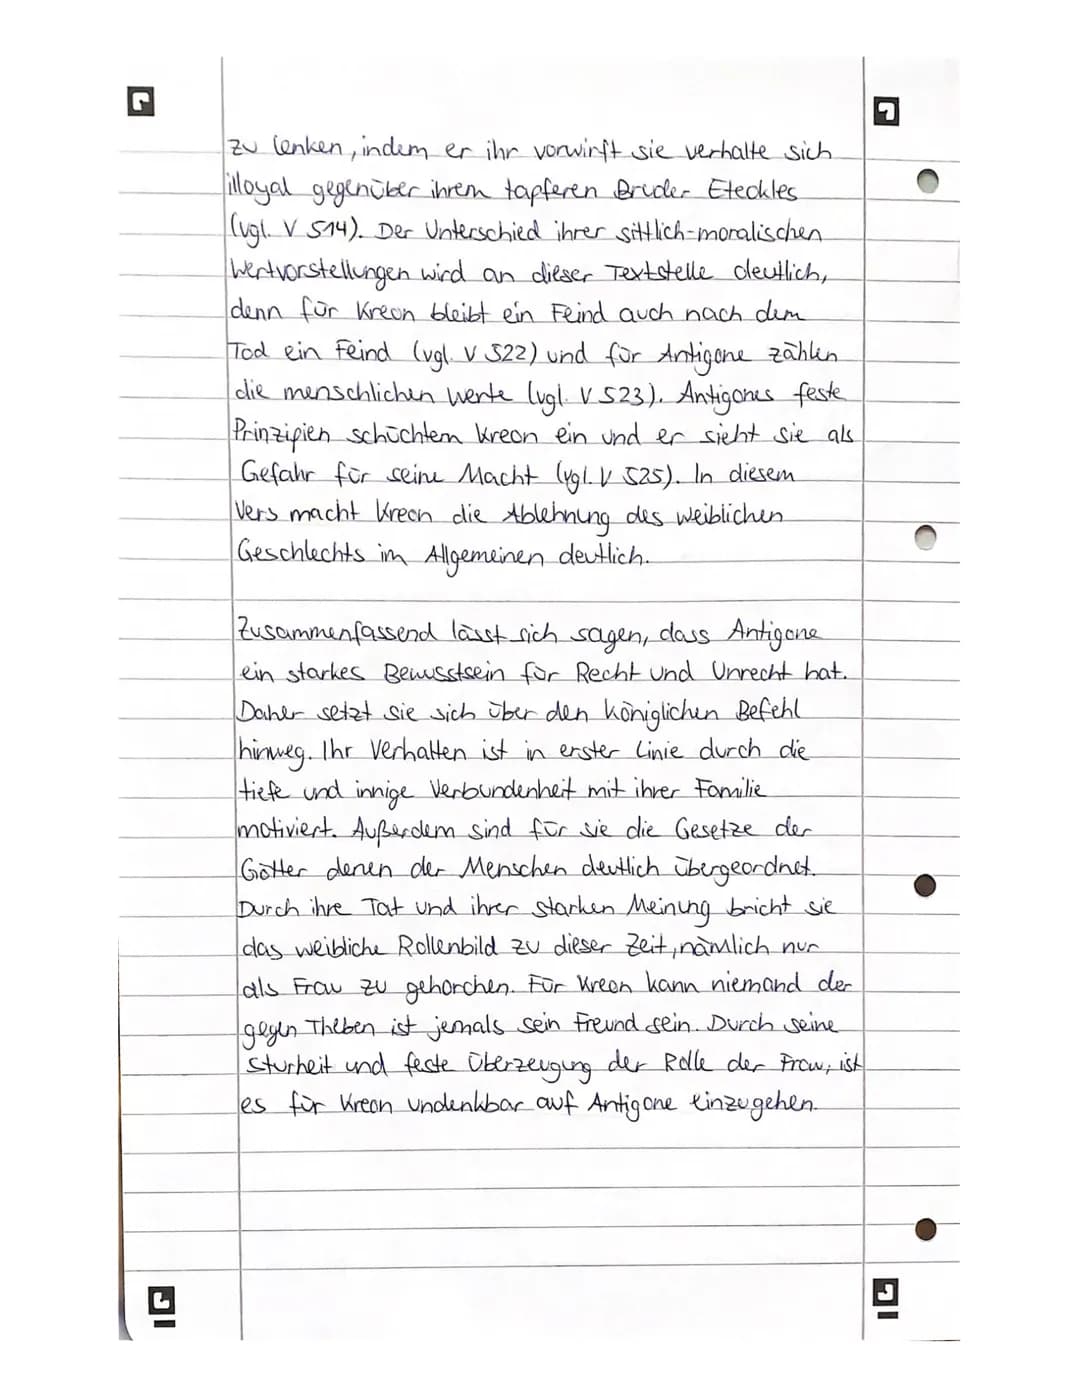 zu lenken, indem er ihr vorwirft sie verhalte sich
illoyal gegenüber ihrem tapferen Bruder Eteokles
(vgl. V 514). Der Unterschied ihrer sittlich-moralischen
Wertvorstellungen wird an dieser Textstelle deutlich,
denn für Kreon bleibt ein Feind auch nach dem
Tod ein Feind (vgl. V 522) und für Antigone zählen
die menschlichen Werte (vgl. V 523). Antigones feste
Prinzipien schüchtern Kreon ein und er sieht sie als
Gefahr für seine Macht (vgl. V 525). In diesem
Vers macht Kreon die Ablehnung des weiblichen
Geschlechts im Allgemeinen deutlich.
Zusammenfassend lässt sich sagen, dass Antigone
ein starkes Bewusstsein für Recht und Unrecht hat.
Daher setzt sie sich über den königlichen Befehl
hinweg. Ihr Verhalten ist in erster Linie durch die
tiefe und innige Verbundenheit mit ihrer Familie
motiviert. Außerdem sind für sie die Gesetze der
Götter denen der Menschen deutlich übergeordnet.
Durch ihre Tat und ihrer starken Meinung bricht sie
das weibliche Rollenbild zu dieser Zeit, nämlich nur
als Frau zu gehorchen. Für Kreon kann niemand der
gegen Theben ist jemals sein Freund sein. Durch seine
Sturheit und feste Überzeugung der Rolle der Frau, ist
es für Kreon undenkbar auf Antigone einzugehen.